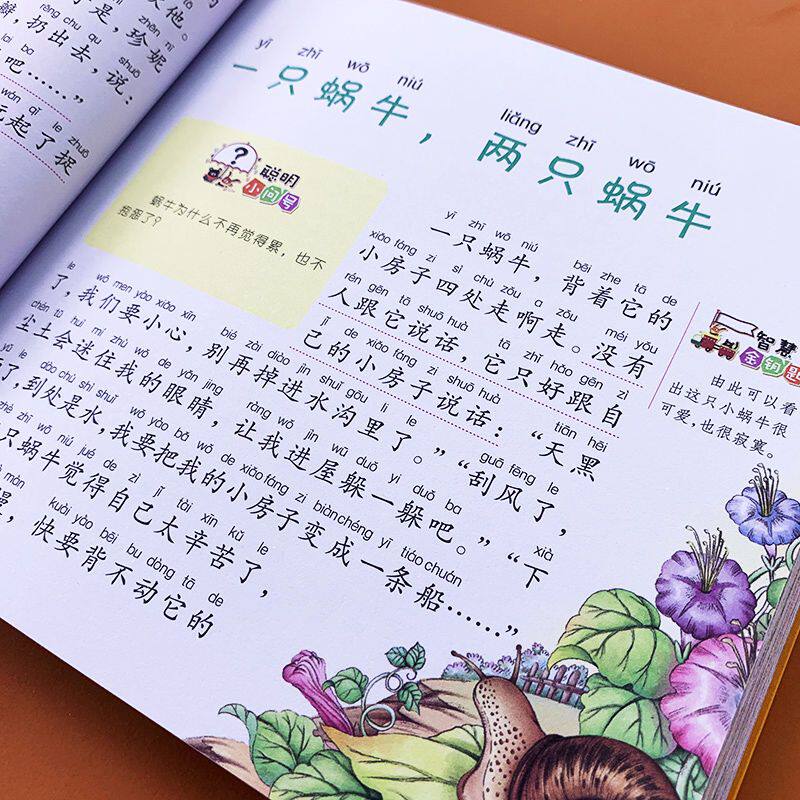 于是，珍妮
rēng chū qu shuō
瓣，扔出去，说：
ba
吧……”
wán qǐ le zhuō
玩起了捉
yì zhī wō niú liǎng zhī wō niú
一只蜗牛，两只蜗牛
聪明
小问号
蜗牛为什么不再觉得累，也不
抱怨了？
yì zhī wō niú bēi zhe tā de
一只蜗牛，背着它的
xiǎo fáng zi sì chù zǒu a zǒu méi yǒu
小房子四处走啊走。没有
rén gēn tā shuō huà tā zhǐ hǎo gēn zì
人跟它说话，它只好跟自
jǐ de xiǎo fáng zi shuō huà tiān hēi
己的小房子说话：“天黑
le wǒ men yào xiǎo xīn bié zài diào jìn shuǐ gōu lǐ le guā fēng le
了，我们要小心，别再掉进水沟里了。”“刮风了，
chén tǔ huì mí zhù wǒ de yǎn jing ràng wǒ jìn wū duǒ yì duǒ ba xià
尘土会迷住我的眼睛，让我进屋躲一躲吧。”“下
le dào chù shì shuǐ wǒ yào bǎ wǒ de xiǎo fáng zi biàn chéng yì tiáo chuán
了，到处是水，我要把我的小房子变成一条船……”
zhī wō niú jué de zì jǐ tài xīn kǔ le
只蜗牛觉得自己太辛苦了，
màn kuài yào bēi bu dòng tā de
慢，快要背不动它的
智慧
金钥匙
由此可以看
出这只小蜗牛很
可爱，也很寂寞。